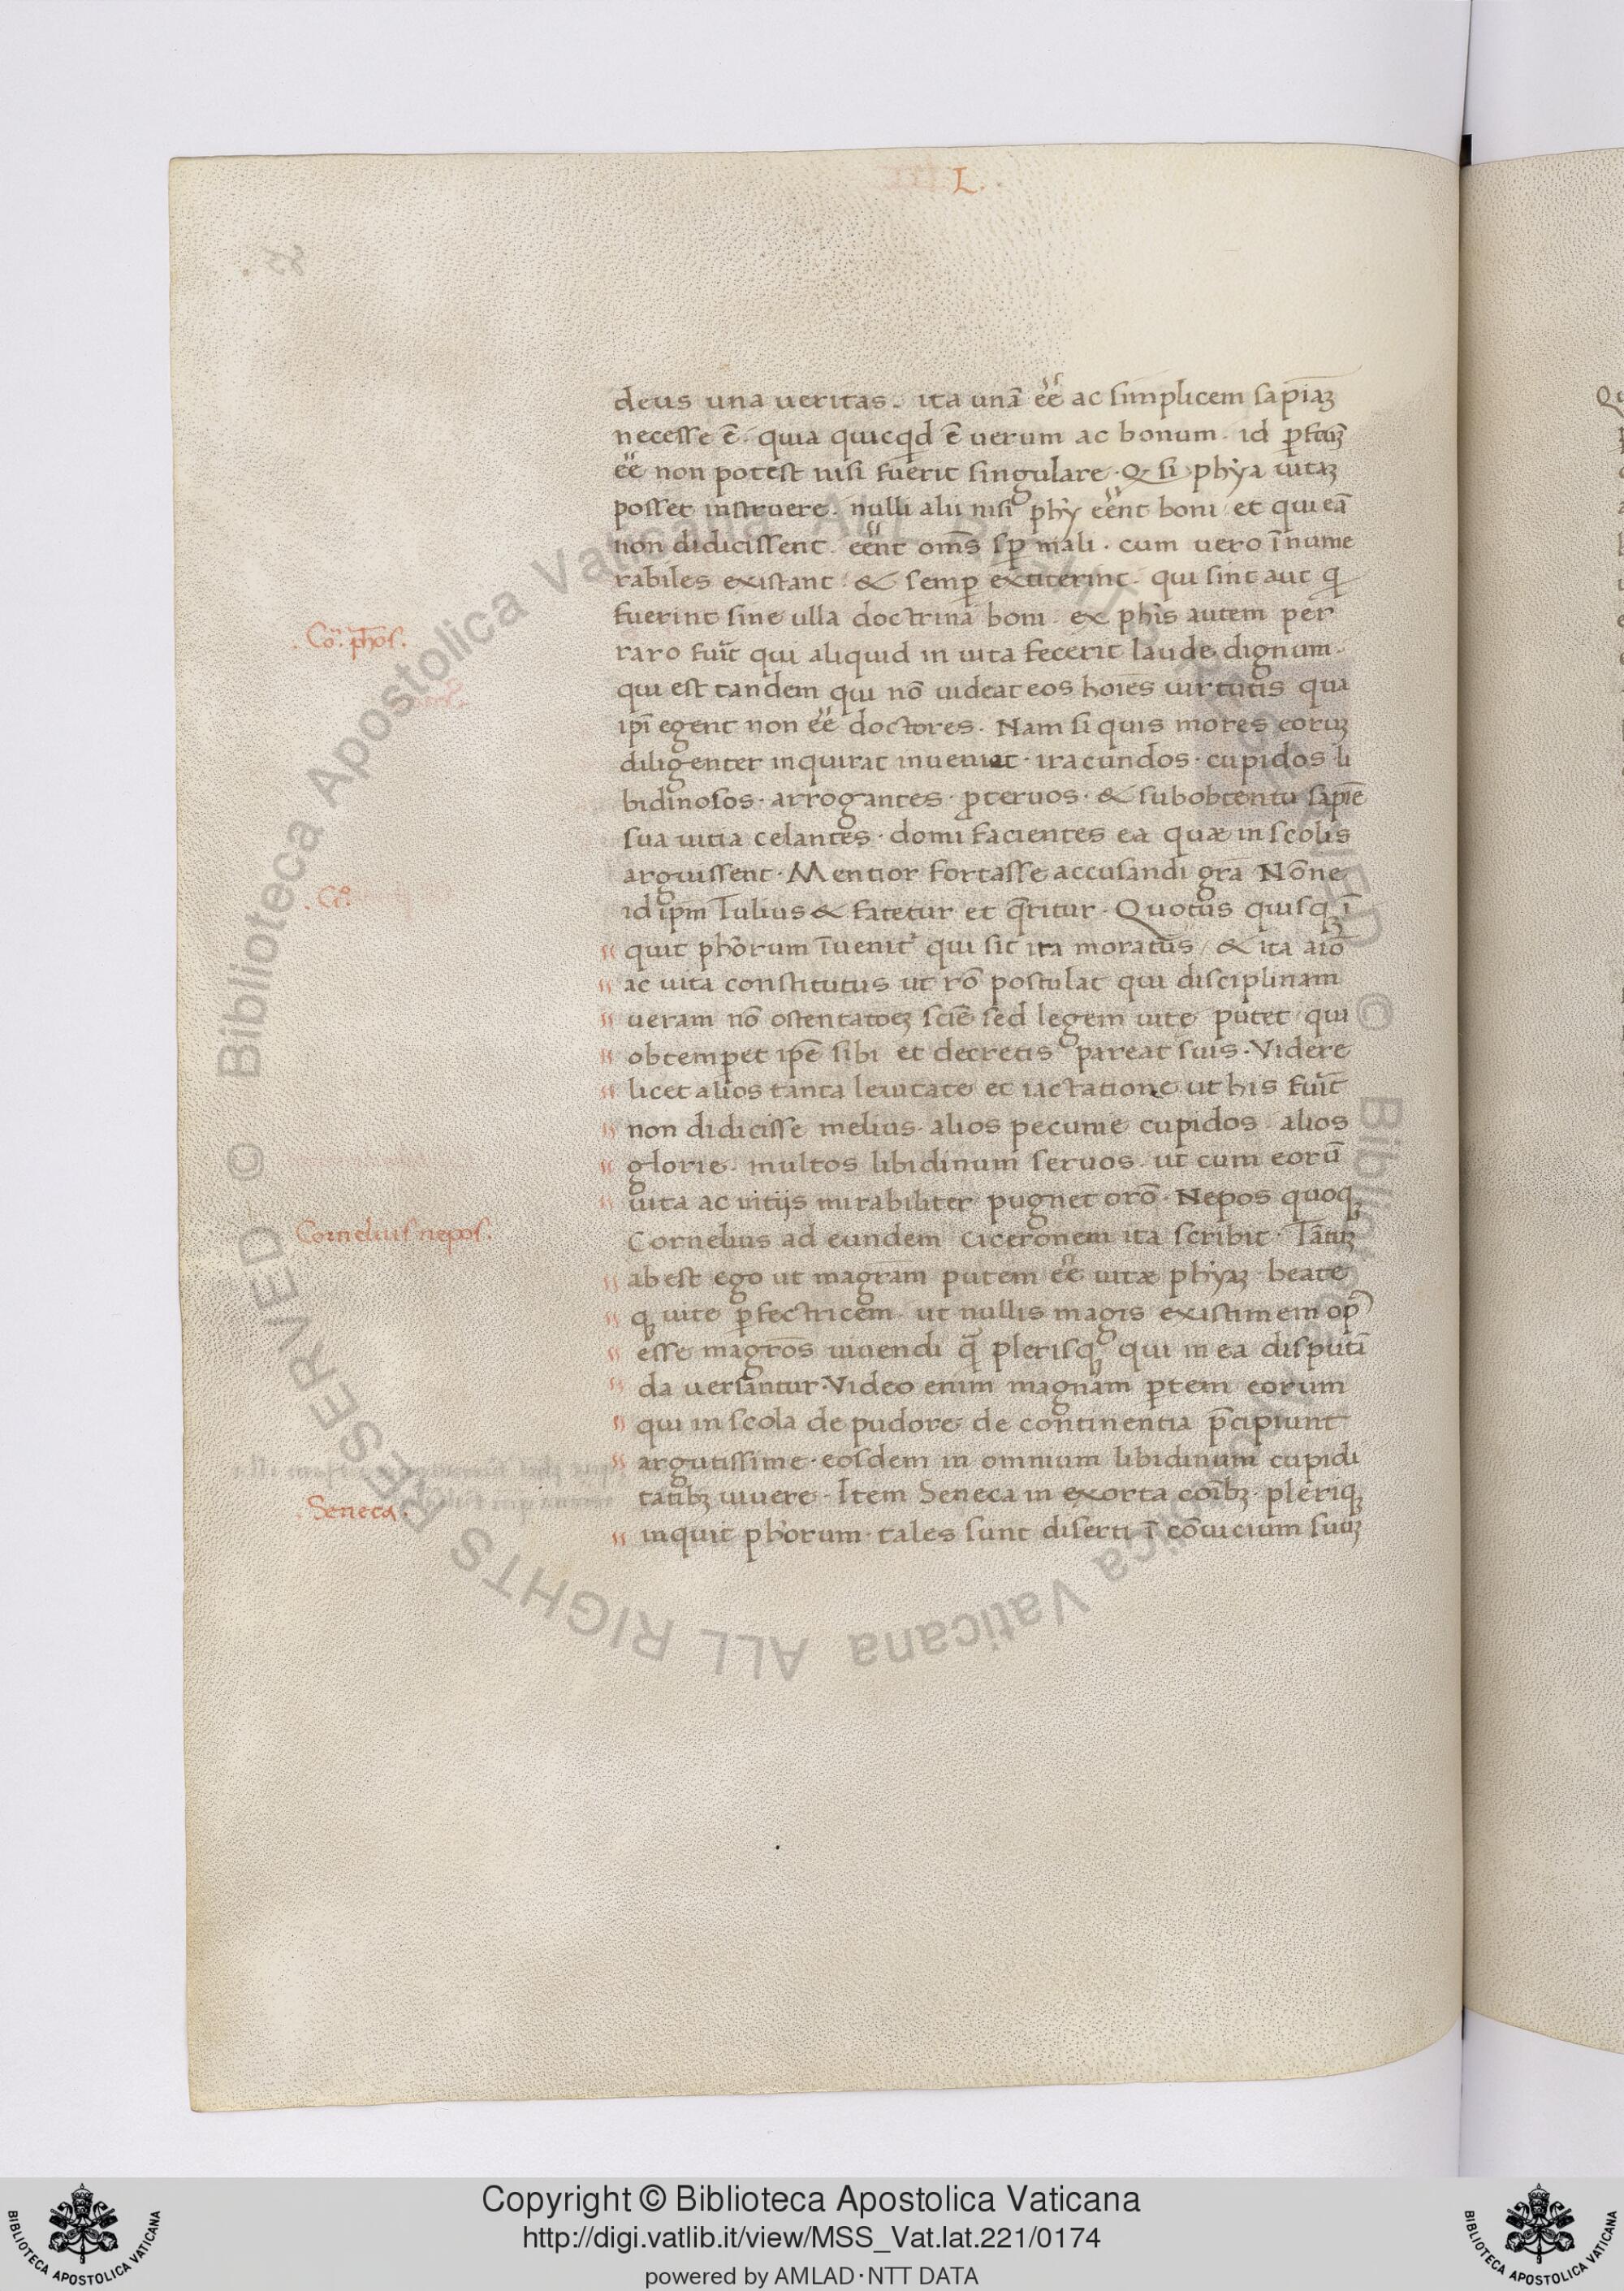 L.
deus una ueritas. ita unā eē ac simplicem sapīaꝫ
necesse ē. quia quicqd ē uerum ac bonum. id ꝑfctūꝫ
eē non potest nisi fuerit singulare. Qꝫ si phya uitaꝫ
posset instruere. nulli alii nisi phy eēnt boni et qui eā
non didicissent. eēnt oms̄ sꝑ mali. cum uero īnume
rabiles existant. & semꝑ extiterint. qui sint aut q
fuerint sine ulla doctrina boni. ex phis autem per
raro fuit qui aliquid in uita fecerit laude dignum.
qui est tandem qui nō uideat eos hoīes uirtutis qua
ipī egent non eē doctores. Nam si quis mores eoruꝫ
diligenter inquirat inueniat. iracundos. cupidos. li
bidinosos. arrogantes. ꝓteruos. & sub obtentu sapīe
sua uitia celantes. domi facientes ea quæ in scolis
arguissent. Mentior fortasse accusandi gra Nōne
id ipm Tulius & fatetur et q̄ritur. Quotus quisqꝫ ī
quit phorum īuenit' qui sit ita moratus / & ita aīo
ac uita constitutus ut rō postulat qui disciplinam
ueram nō ostentatoēꝫ sciē sed legem uite putet qui
obtemꝑet ipē sibi et decretis pareat suis. Videre
licet alios tanta leuitate et iactatione ut his fuit
non didicisse melius. alios pecunie cupidos. alios
glorie. multos libidinum seruos. ut cum eorū
uita ac uitijs mirabiliter pugnet orō. Nepos quoqꝫ
Cornelius ad eundem Ciceronem ita scribit. Tātuꝫ
abest ego ut magram putem eē uitæ phyaꝫ beate
qꝫ uite ꝑfectricem. ut nullis magis existimem op
esse magrōs uiuendi q̄ plerisqꝫ qui in ea disputā
da uersantur. Video enim magnam ꝑtem eorum
qui in scola de pudore de continentia p̄cipiunt
argutissime. eosdem in omnium libidinum cupidi
tatibꝫ uiuere. Item Seneca in exorta coībꝫ. pleriqꝫ
inquit phorum. tales sunt diserti ī cōuicium suuꝫ
.Co. phos.
.Co.
Cornelius nepos.
.Seneca.
© Biblioteca Apostolica Vaticana ALL RIGHTS RESERVED © Biblioteca Apostolica Vaticana ALL RIGHTS RESERVED
Copyright © Biblioteca Apostolica Vaticana
http://digi.vatlib.it/view/MSS_Vat.lat.221/0174
powered by AMLAD·NTT DATA
BIBLIOTECA APOSTOLICA VATICANA
BIBLIOTECA APOSTOLICA VATICANA